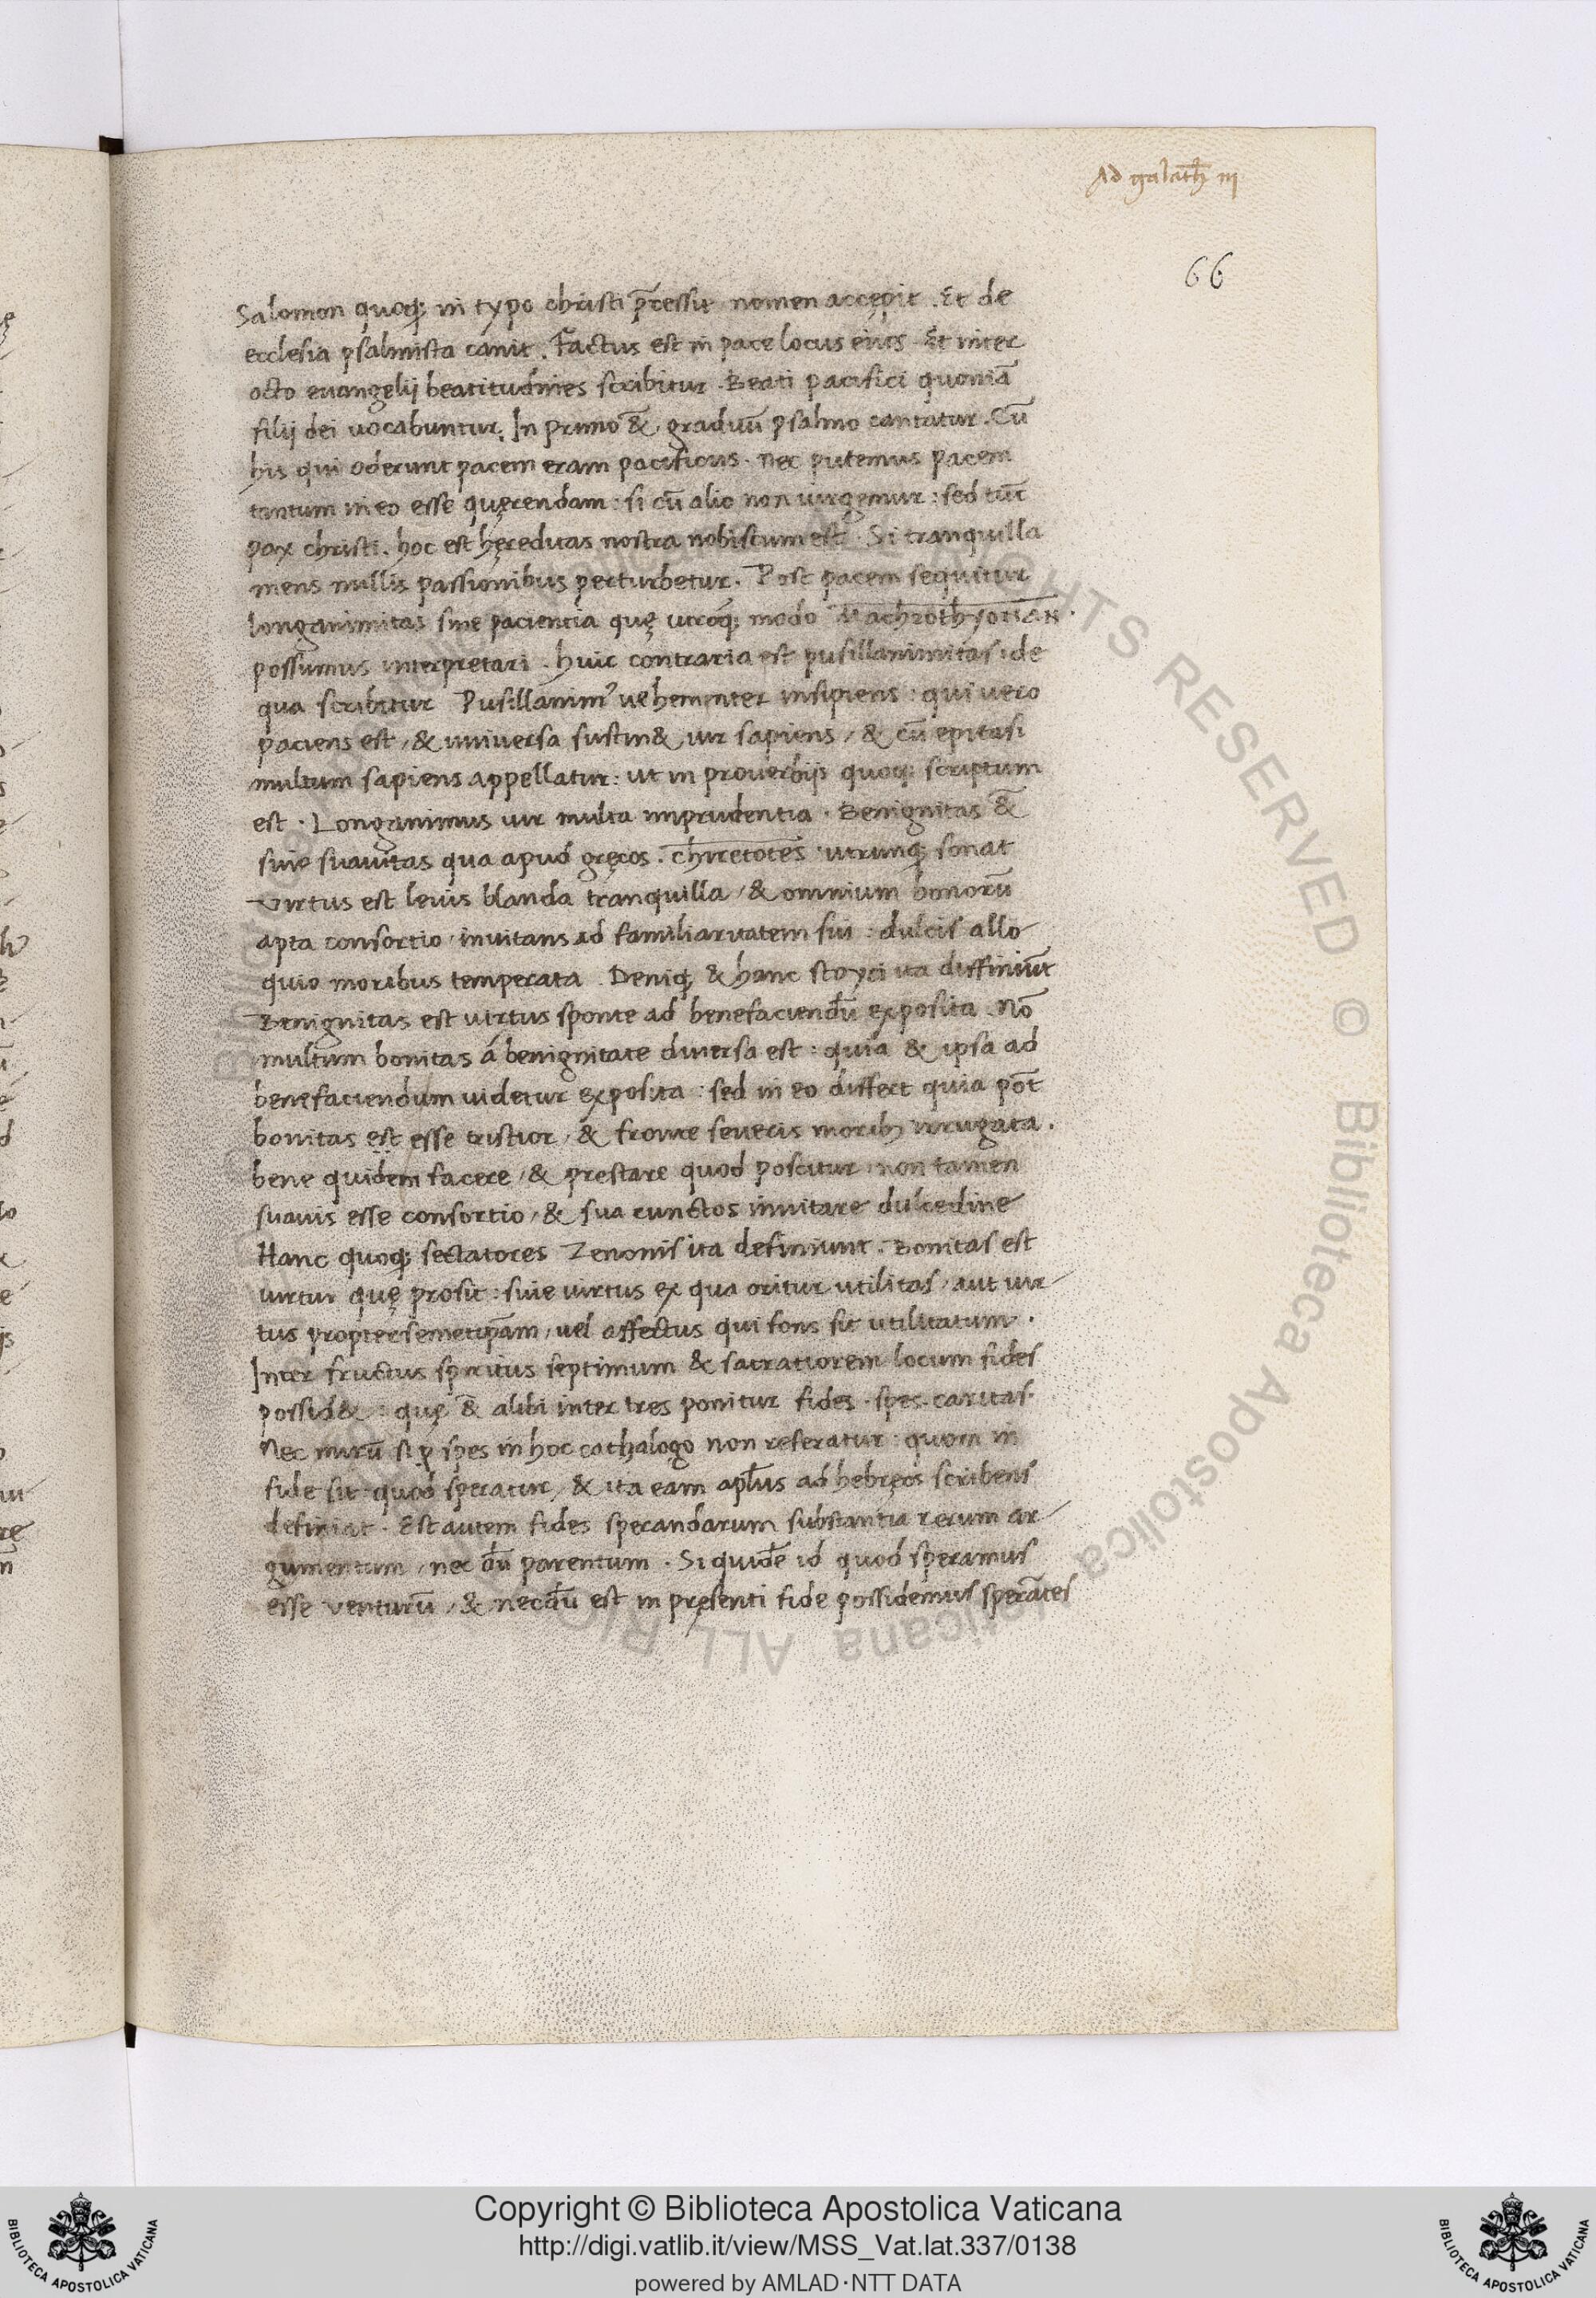 Ad galath̅ iij
66
Salomon quoq; in typo christi p̅cessit nomen accępit . Et de
ecclesia psalmista canit . Factus est in pace locus eius . Et inter
octo euangelij beatitudines scribitur . Beati pacifici quoniā
filij dei uocabuntur . In primo &̅ graduū psalmo cantatur . Cū
his qui oderunt pacem eram pacificus . Nec putemus pacem
tantum in eo esse quęrendam : si cū alio non iurgemur : sed tūc
pax christi . hoc est hęreditas nostra nobiscum est . Si tranquilla
mens nullis passionibus perturbetur . Post pacem sequitur
longanimitas siue paciencia quę utroq; modo
possumus interpretari . huic contraria est pusillanimitas : de
qua scribitur Pusillanim' uehementer insipiens : qui uero
paciens est / & uniuersa sustin& uir sapiens / & cū epitasi
multum sapiens appellatur : ut in prouerbijs quoq; scriptum
est . Longanimus uir multa inprudentia . Benignitas &̅
siue suauitas qua apud gręcos . chretotes utrunq; sonat
Virtus est leuis blanda tranquilla / & omnium bonorū
apta consortio / inuitans ad familiaritatem sui : dulcis allo
quio moribus temperata . Deniq; & hanc stoyci ita diffiniūt
Benignitas est uirtus sponte ad benefaciendū exposita . Nō
multum bonitas á benignitate diuersa est : quia & ipsa ad
benefaciendum uidetur exposita : sed in eo differt quia pōt
bonitas est esse tristior / & fronte seueris morib; irrugata .
bene quidem facere / & prestare quod poscitur : non tamen
suauis esse consortio / & sua cunctos inuitare dulcedine
Hanc quoq; sectatores Zenonis ita definiunt . Bonitas est
uirtus quę prosit : siue uirtus ex qua oritur utilitas / aut uir
tus propter semetip̅am / uel affectus qui fons sit utilitatum .
Inter fructus spiritus septimum & sacratiorem locum fides
possid& : quę &̅ alibi inter tres ponitur fides . spes . caritas .
Nec mirū si spes in hoc cathalogo non referatur : quom in
fide sit quod speratur / & ita eam apl̅us ad hebręos scribens
definiat . Est autem fides sperandarum substantia rerum ar
gumentum / nec dū parentum . Si quidē id quod speramus
esse venturū / & necdū est in pręsenti fide possidemus sperātes
Copyright © Biblioteca Apostolica Vaticana
http://digi.vatlib.it/view/MSS_Vat.lat.337/0138
powered by AMLAD·NTT DATA